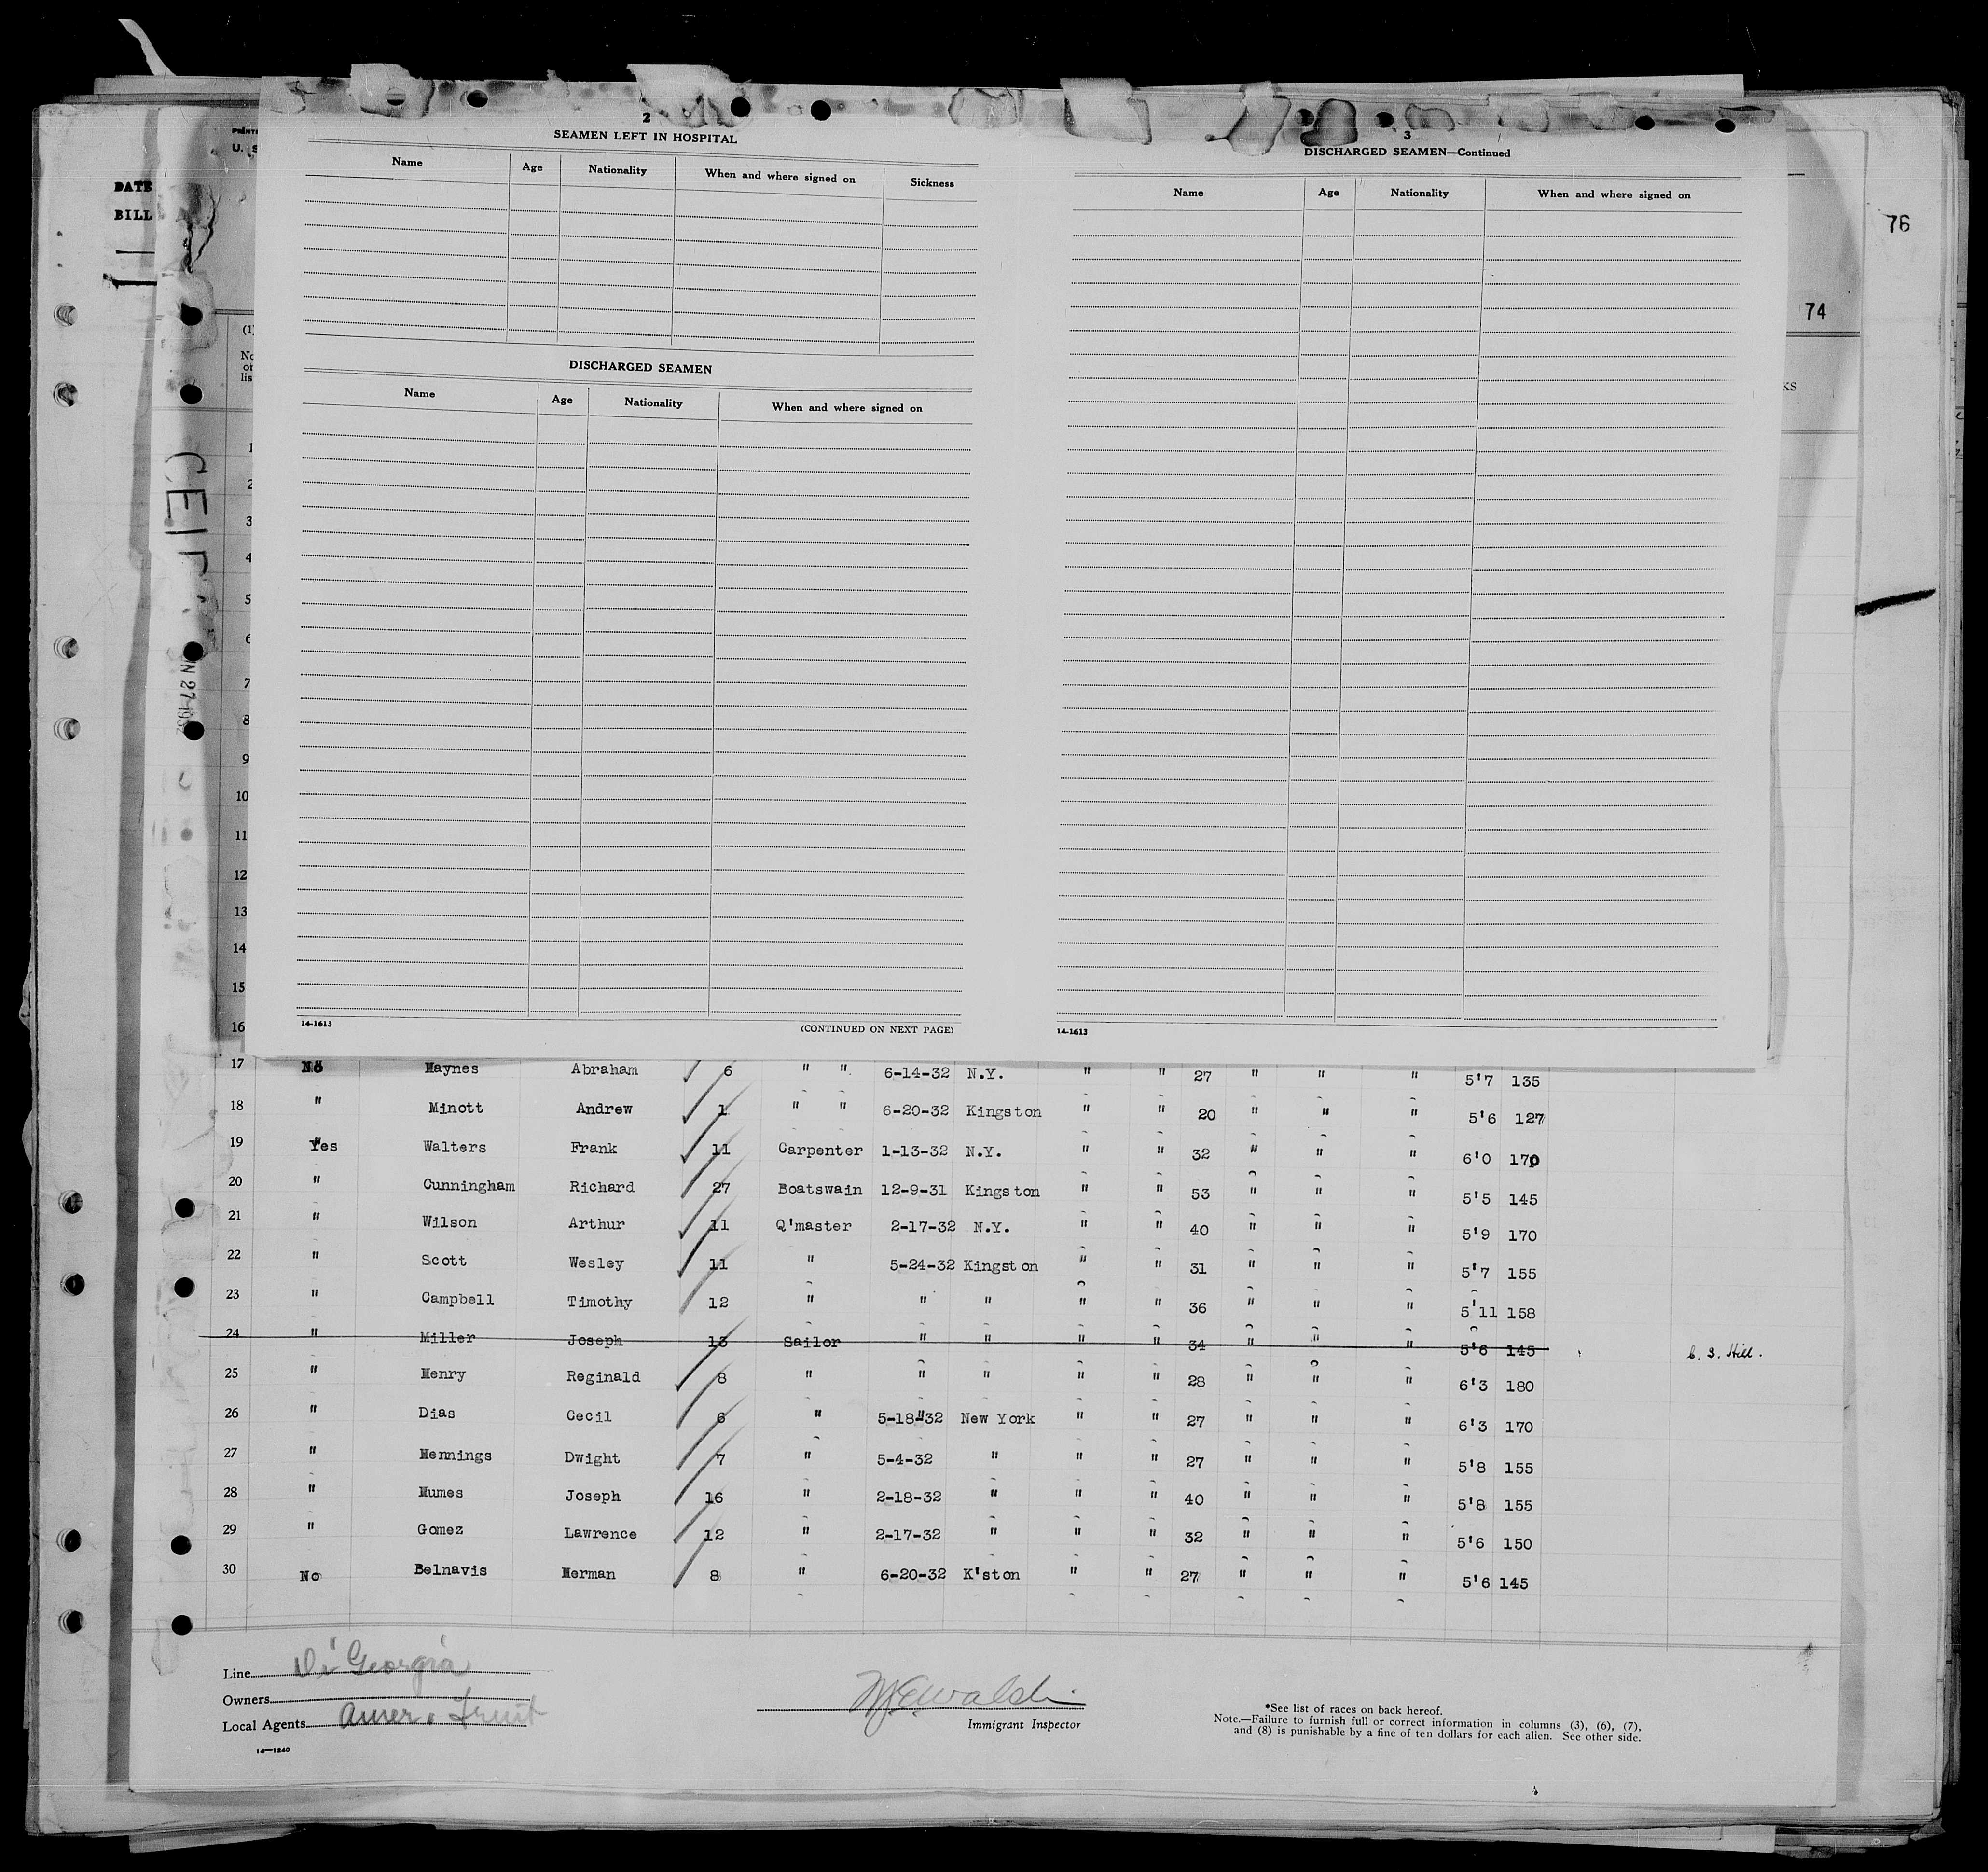 2
SEAMEN LEFT IN HOSPITAL
Name Age Nationality When and where signed on Sickness
DISCHARGED SEAMEN
Name Age Nationality When and where signed on
14-1613 (CONTINUED ON NEXT PAGE)
3
DISCHARGED SEAMEN—Continued
Name Age Nationality When and where signed on
14-1613
76
74
DATE
BILL
U. S
(1)
No
on
lis
KS
1
2
3
4
5
6
7
8
9
10
11
12
13
14
15
16
17 No Haynes Abraham 6 " " 6-14-32 N.Y. " " 27 " " " 5'7 135
18 " Minott Andrew 1 " " 6-20-32 Kingston " " 20 " " " 5'6 127
19 Yes Walters Frank 11 Carpenter 1-13-32 N.Y. " " 32 " " " 6'0 170
20 " Cunningham Richard 27 Boatswain 12-9-31 Kingston " " 53 " " " 5'5 145
21 " Wilson Arthur 11 Q'master 2-17-32 N.Y. " " 40 " " " 5'9 170
22 " Scott Wesley 11 " 5-24-32 Kingston " " 31 " " " 5'7 155
23 " Campbell Timothy 12 " " " " " 36 " " " 5'11 158
24 " Miller Joseph 13 Sailor " " " " 34 " " " 5'6 145
25 " Henry Reginald 8 " " " " " 28 " " " 6'3 180
26 " Dias Cecil 6 " 5-18-32 New York " " 27 " " " 6'3 170
27 " Hennings Dwight 7 " 5-4-32 " " " 27 " " " 5'8 155
28 " Mumes Joseph 16 " 2-18-32 " " " 40 " " " 5'8 155
29 " Gomez Lawrence 12 " 2-17-32 " " " 32 " " " 5'6 150
30 No Belnavis Herman 8 " 6-20-32 K'ston " " 27 " " " 5'6 145
Line Di Georgia
Owners
Local Agents Amer. Fruit
14—1240
Immigrant Inspector
*See list of races on back hereof.
Note.—Failure to furnish full or correct information in columns (3), (6), (7),
and (8) is punishable by a fine of ten dollars for each alien. See other side.